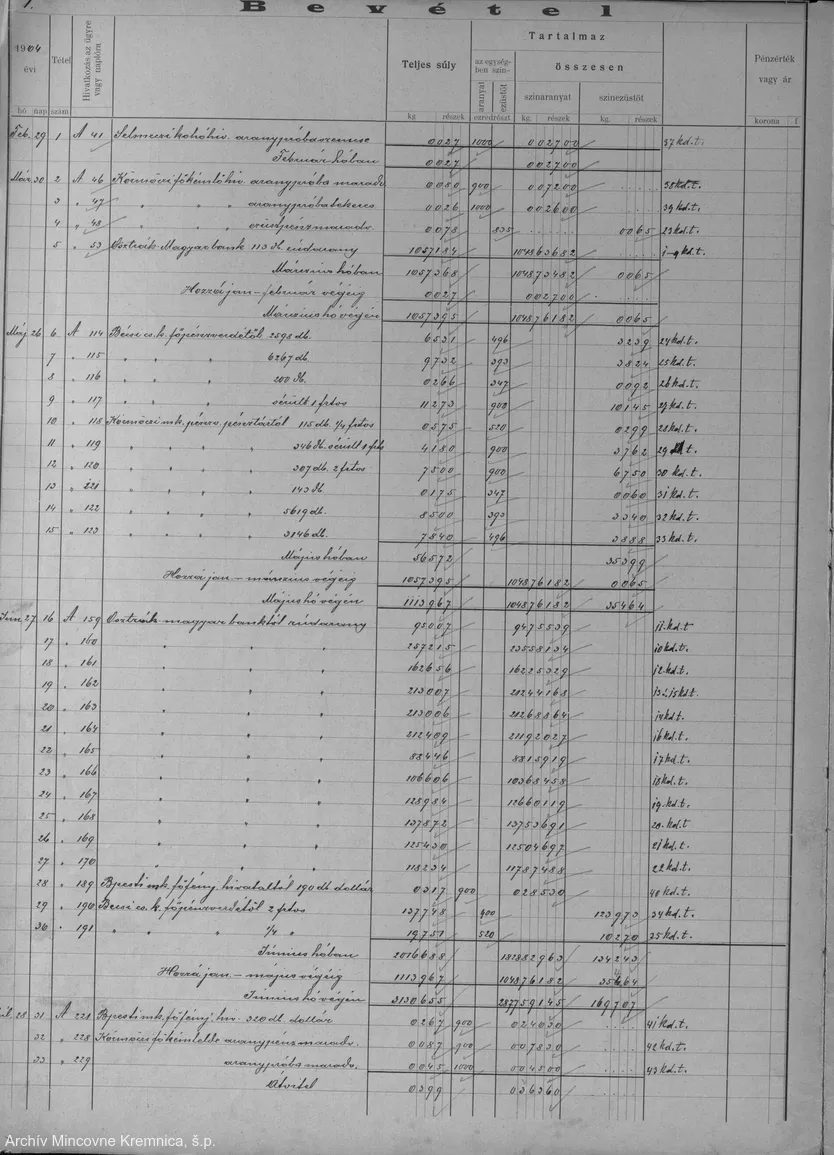 1. Bevétel
1904 évi
Tétel
Hivatkozás az ügyre vagy naplóra
Teljes súly
Tartalmaz
az egységben szín-
összesen
aranyat
ezüstöt
ezredrészt
színaranyat
színezüstöt
Pénzérték vagy ár
hó nap szám kg részek kg. részek kg. részek korona f
Feb. 29 1 A 41 0027 1000 002700 37 kd.t.
Február hóban 0027 002700
Már. 30 2 A 46 0080 900 007200 38 kd.t.
3 " 47 " " 0026 1000 002600 39 kd.t.
4 " 48 " " 0078 835 0065 23 kd.t.
5 " 53 Osztrák-Magyar bank 113 db rúdarany 1057184 104863682 1-9 kd.t.
Márczius hóban 1057368 104873482 0065
Hozzá jan – február végéig 0027 002700
Márczius hó végén 1057395 104876182 0065
Máj. 26 6 A 114 Bécsi cs. k. főpénzverdétől 2598 db. 6531 496 3239 24 kd.t.
7 " 115 " " " 6267 db 9732 393 3824 25 kd.t.
8 " 116 " " " 200 db. 0266 347 0092 26 kd.t.
9 " 117 " " sérült 1 frtos 11273 900 10145 27 kd.t.
10 " 118 115 db. 1/4 frtos 0575 520 0299 28 kd.t.
11 " 119 " " " 346 db. sérült 1 frts 4180 900 3762 29 kd.t.
12 " 120 " " " 307 db. 2 frtos 7500 900 6750 30 kd.t.
13 " 121 " " " 143 db 0175 347 0060 31 kd.t.
14 " 122 " " " 5619 db. 8500 393 3340 32 kd.t.
15 " 123 " " " 3146 db. 7840 496 3888 33 kd.t.
Május hóban 56572 35399
Hozzá jan – márczius végéig 1057395 104876182 0065
Május hó végén 1113967 104876182 35464
Jun. 27 16 A 159 Osztrák magyar banktól rúdarany 95007 9475539 11 kd.t
17 " 160 " " " 237215 23558134 10 kd.t.
18 " 161 " " 162656 16225329 12 kd.t.
19 " 162 " " 213007 21244168 13 és 15 kd.t.
20 " 163 " " 213006 21268864 14 kd.t.
21 " 164 " " 212409 21192027 16 kd.t.
22 " 165 " " 88446 8815919 17 kd.t.
23 " 166 " " 106606 10368458 18 kd.t.
24 " 167 " " 128984 12660119 19 kd.t.
25 " 168 " " 137872 13753691 20 kd.t.
26 " 169 " " 125430 12504697 21 kd.t.
27 " 170 " " 118234 11787488 22 kd.t.
28 " 189 Bpesti mk. főfény. hivataltól 190 db dollár 0317 900 028530 40 kd.t.
29 " 190 Bécsi cs. k. főpénzverdétől 2 frtos 137748 900 123973 34 kd.t.
30 " 191 " " " 1/4 " 19751 520 10270 35 kd.t.
Június hóban 2016688 182882963 134243
Hozzá jan – május végéig 1113967 104876182 35464
Június hó végén 3130655 287759145 169707
28 31 A 221 Bpesti mk. főfényj. hiv. 320 db. dollár 0267 900 024030 41 kd.t.
32 " 228 0087 900 007830 42 kd.t.
33 " 229 0045 1000 004500 43 kd.t.
Átvitel 0399 036360
Archív Mincovne Kremnica, š.p.